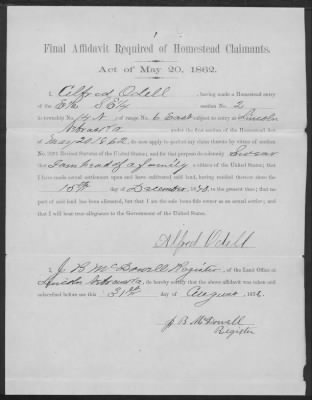 Final Affidavit Required of Homestead Claimants.
Act of May 20, 1862.
I, Alfred Odell, having made a Homestead entry
of the E½ SE¼ section No. 2
in township No. 14 N of range No. 6 East subject to entry at Lincoln
Nebraska under the first section of the Homestead Act
of May 20 1862, do now apply to perfect my claim thereto by virtue of section
No. 2291 Revised Statutes of the United States; and for that purpose do solemnly Swear
that I am head of a family a citizen of the United States; that
I have made actual settlement upon and have cultivated said land, having resided thereon since the
15th day of December, to the present time; that no
part of said land has been alienated, but that I am the sole bona fide owner as an actual settler; and
that I will bear true allegiance to the Government of the United States.
Alfred Odell
I, J B McDowall Register, of the Land Office at
Lincoln Nebraska, do hereby certify that the above affidavit was taken and
subscribed before me this 31st day of August
J B McDowall
Register